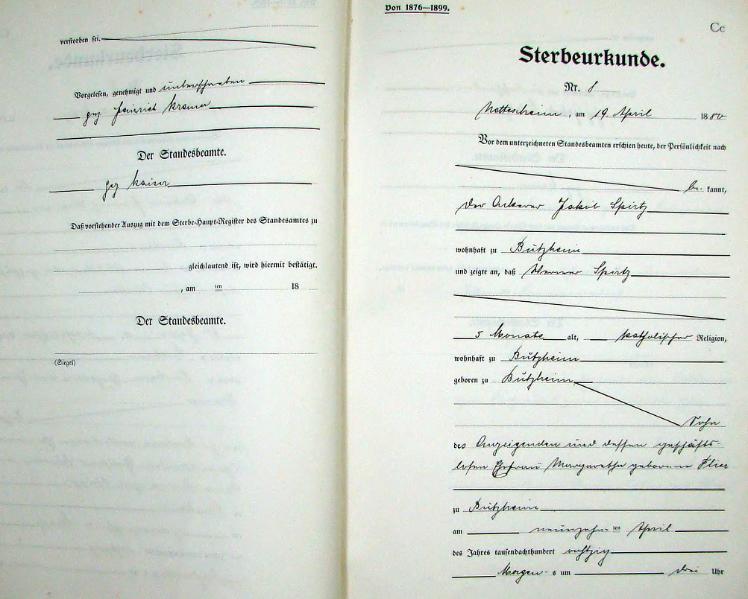 verstorben sei.
Vorgelesen, genehmigt und unterschrieben
gez Heinrich
Der Standesbeamte.
gez Kaiser
Daß vorstehender Auszug mit dem Sterbe-Haupt-Register des Standesamtes zu
gleichlautend ist, wird hiermit bestätigt.
, am ten 18
Der Standesbeamte.
(Siegel)
Von 1876—1899.
Cc
Sterbeurkunde.
Nr. 8
Nettesheim, am 19 April 1880
Vor dem unterzeichneten Standesbeamten erschien heute, der Persönlichkeit nach
be kannt,
der Ackerer Jakob Spirtz
wohnhaft zu Bützheim
und zeigte an, daß Werner Spirtz
5 Monate alt, katholischer Religion,
wohnhaft zu Bützheim
geboren zu Bützheim
Sohn
des Anzeigenden und dessen geschäfts-
losen Ehefrau Margaretha geborenen
zu Bützheim
am neunzehn ten April
des Jahres tausendachthundert achtzig
Morgen s um drei Uhr